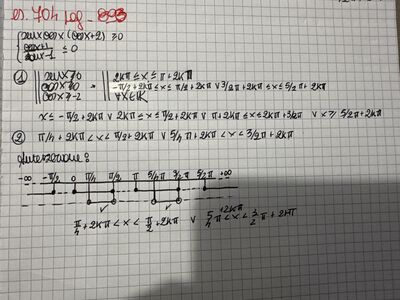 es. 704 pag.
{ senx cosx (cosx+2) ≥ 0
{ cosx+1 / tanx-1 ≤ 0
① || senx ≥ 0 || 2kπ ≤ x ≤ π + 2kπ
|| cosx ≥ 0 = || -π/2 + 2kπ ≤ x ≤ π/2 + 2kπ ∨ 3/2π + 2kπ ≤ x ≤ 5/2π + 2kπ
|| cosx ≥ -2 || ∀x∈ℝ
x ≤ -π/2 + 2kπ ∨ 2kπ ≤ x ≤ π/2 + 2kπ ∨ π + 2kπ ≤ x ≤ 2kπ + 3/2π ∨ x ≥ 5/2π + 2kπ
② π/4 + 2kπ < x < π/2 + 2kπ ∨ 5/4π + 2kπ < x < 3/2π + 2kπ
Intersezione:
-∞ -π/2 0 π/4 π/2 π 5/4π 3/2π 5/2π +∞
✓ ✓
π/4 + 2kπ < x < π/2 + 2kπ ∨ 5/4π +2kπ < x < 3/2π + 2kπ